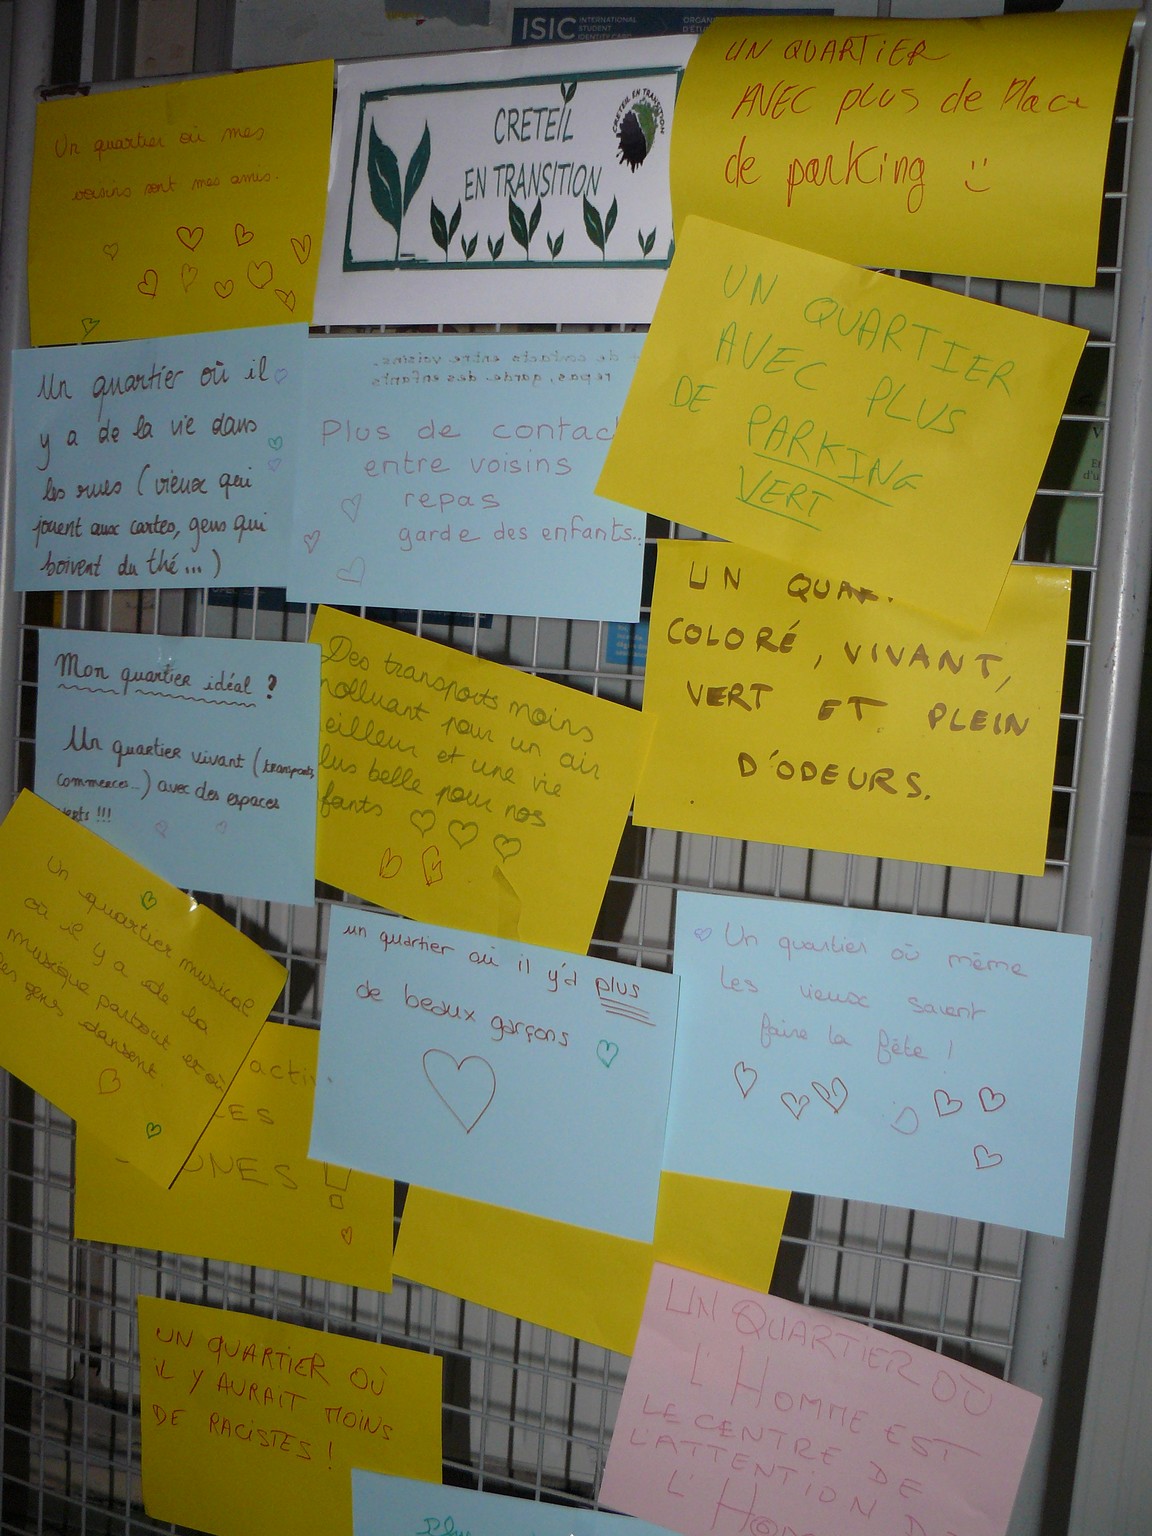 ISIC
INTERNATIONAL
STUDENT
IDENTITY CARD
Un quartier où mes
voisins sont mes amis.
CRETEIL
EN TRANSITION
CRETEIL EN TRANSITION
UN QUARTIER
AVEC plus de Place
de parking :)
UN QUARTIER
AVEC PLUS
DE PARKING
VERT
Un quartier où il
y a de la vie dans
les rues (vieux qui
jouent aux cartes, gens qui
boivent du thé...)
+ de contacts entre voisins.
repas, garde des enfants
Plus de contac
entre voisins
repas
garde des enfants..
UN QUAR
COLORÉ, VIVANT,
VERT ET PLEIN
D'ODEURS.
Mon quartier idéal ?
Un quartier vivant (transports
commerces...) avec des espaces
verts !!!
Des transports moins
polluant pour un air
eilleur et une vie
lus belle pour nos
fants
Un quartier musical
où il y a de la
musique partout et où
des gens dansent.
activ
ES
UNES !
un quartier où il y'a plus
de beaux garçons
Un quartier où même
les vieux savent
faire la fête !
UN QUARTIER OÙ
IL Y AURAIT MOINS
DE RACISTES !
UN QUARTIER OÙ
L'HOMME EST
LE CENTRE DE
L'ATTENTION D
L'HOM
Plus